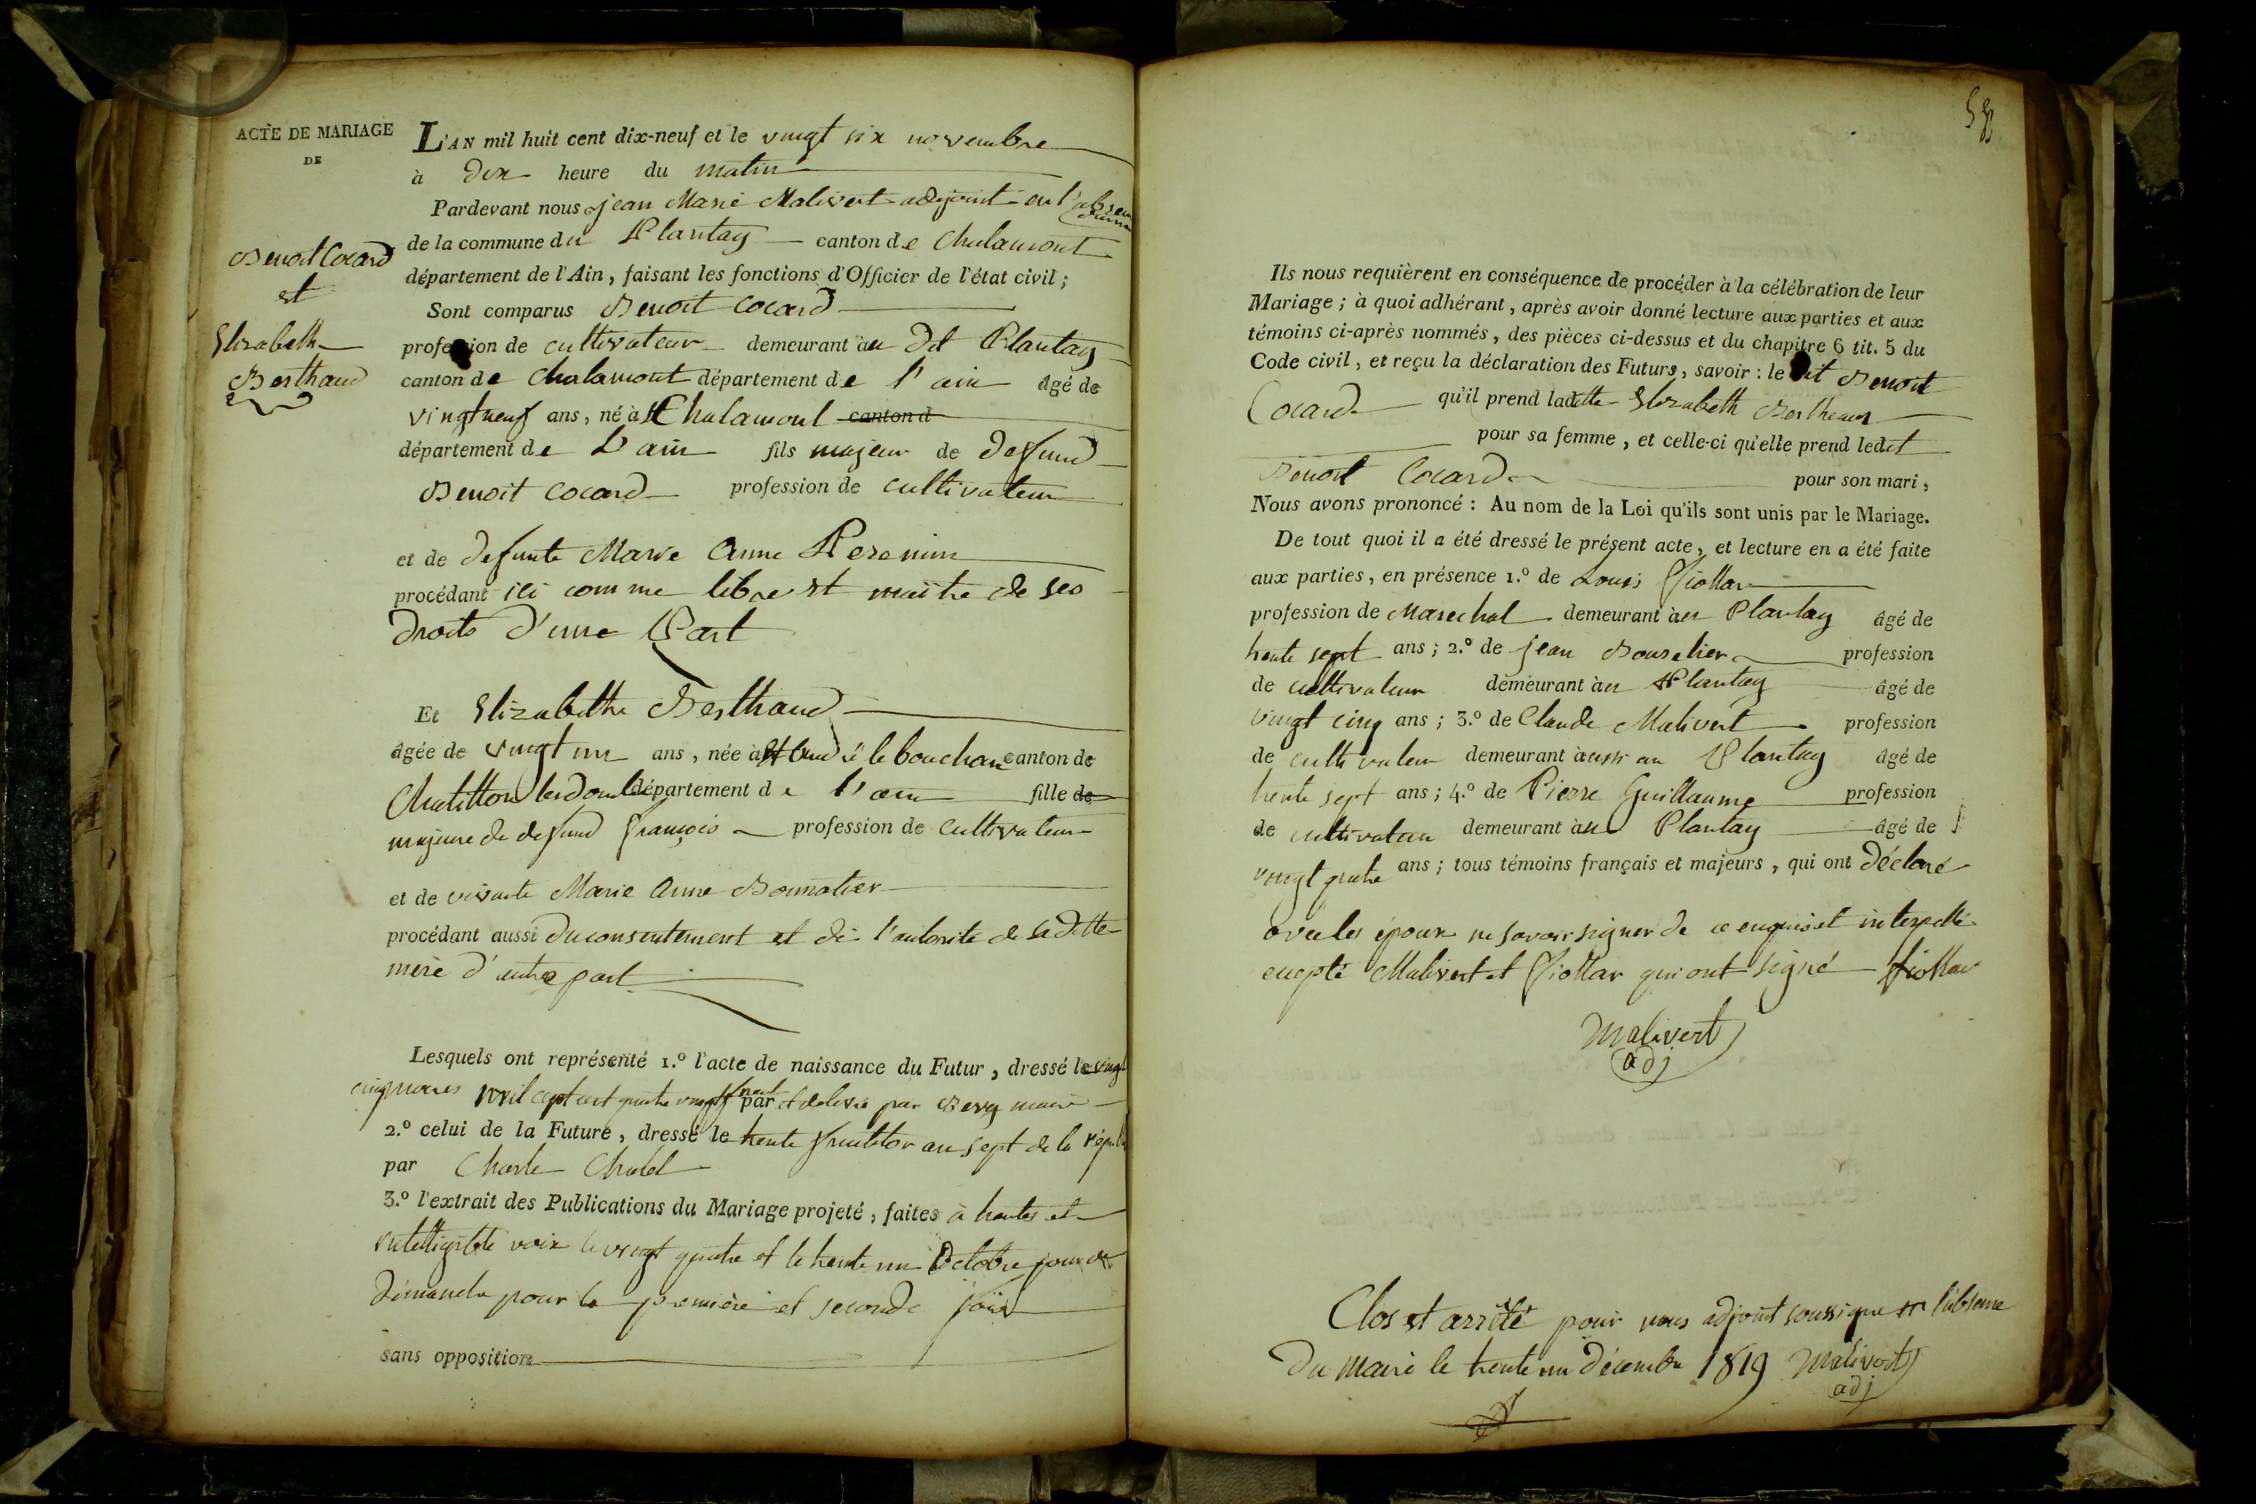 ACTE DE MARIAGE
DE
Benoit Cocard
et
Elizabeth
Berthaud
L'AN mil huit cent dix-neuf et le vingt six novembre
à dix heure du matin
Pardevant nous jean Marie Malivert adjoint en l'absence
du maire
de la commune du Plantay canton de Chalamont
département de l'Ain, faisant les fonctions d'Officier de l'état civil;
Sont comparus Benoit Cocard
profession de cultivateur demeurant au dit Plantay
canton de Chalamont département de l'ain âgé de
vingt neuf ans, né à Chalamont canton d
département de L'ain fils majeur de defund
Benoit Cocard profession de cultivateur
et de defunte Marie Anne
procédant ici comme libre et maitre de ses
droits d'une Part
Et Elizabethe Berthaud
âgée de vingt un ans, née à St André le bouchoux canton de
Chatillon les Dombes département de l'ain fille de
majeure de defund françois profession de cultivateur
et de vivante Marie Anne Bonnatier
procédant aussi du consentement et de l'autorité de sa ditte
mere d'autre part
Lesquels ont représenté 1.º l'acte de naissance du Futur, dressé le vingt
cinq mars mil sept cent quatre vingt neuf par et delivré par maire
2.º celui de la Future, dressé le trente fructidor an sept de la répu
par Charle Chatel
3.º l'extrait des Publications du Mariage projeté, faites à hautes et
intelligible voix le vingt quatre et le trente un Octobre jour de
dimanche pour la premiere et seconde fois
sans opposition
Ils nous requièrent en conséquence de procéder à la célébration de leur
Mariage; à quoi adhérant, après avoir donné lecture aux parties et aux
témoins ci-après nommés, des pièces ci-dessus et du chapitre 6 tit. 5 du
Code civil, et reçu la déclaration des Futurs, savoir: le dit Benoit
Cocard qu'il prend ladette Elizabeth Bertheaux
pour sa femme, et celle-ci qu'elle prend ledit
Benoit Cocard pour son mari,
Nous avons prononcé: Au nom de la Loi qu'ils sont unis par le Mariage.
De tout quoi il a été dressé le présent acte, et lecture en a été faite
aux parties, en présence 1.º de Louis fiollar
profession de Marechal demeurant au Plantay âgé de
trente sept ans; 2.º de jean Bourselier profession
de cultivateur demeurant au Plantay âgé de
vingt cinq ans; 3.º de Claude Malivert profession
de cultivateur demeurant aussi au Plantay âgé de
trente sept ans; 4.º de Pierre Guillaume profession
de cultivateur demeurant au Plantay âgé de
vingt quatre ans; tous témoins français et majeurs, qui ont déclaré
avec les époux ne savoir signer de ce enquis et interpellé
excepté Malivert et fiollar qui ont signé fiollar
Malivert
adj
Clos et arrêté pour nous adjoint soussigné en l'absence
du Maire le trente un décembre 1819 Malivert
adj